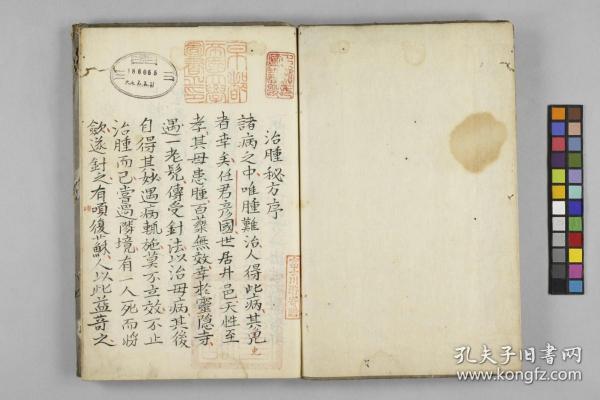 治腫秘方序
諸病之中唯腫難治人得此病其免
者幸矣任君彦國世居井邑天性至
孝其母患腫百藥無效幸於靈隐寺
遇一老髡傳受針法以治母病其後
自得其妙遇病輒施莫不立效不止
治腫而已嘗過隣境有一人死而将
歛遂針之有頃復蘇人以此益奇之
186065
孔夫子旧书网
www.kongfz.com